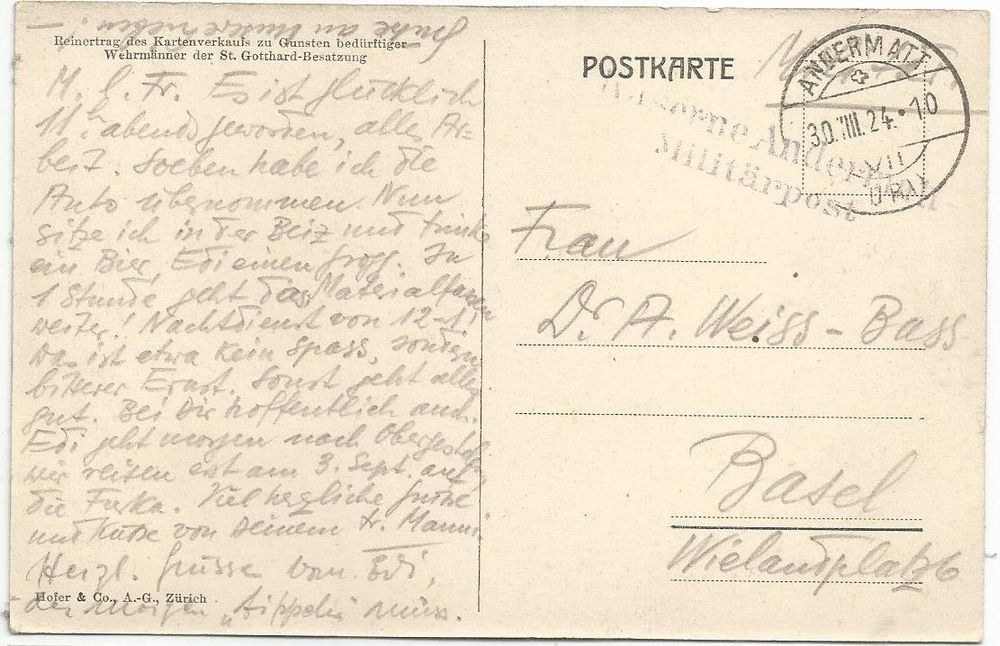 Reinertrag des Kartenverkaufs zu Gunsten bedürftiger
Wehrmänner der St. Gotthard-Besatzung
M. l. Fr. Es ist glücklich
11h abends geworden, alles Ar=
beit. Soeben habe ich die
Auto übernommen. Nun
sitze ich in der Beiz und trinke
ein Bier, Edi einen Grogg. In
1 Stunde geht das Material fassen
weiter! Nachtdienst von 12-1!
Das ist etwa kein Spass, sondern
bitterer Ernst. Sonst geht alles
gut. Bei Dir hoffentlich auch.
Edi geht morgen nach Obergesteln,
wir reisen erst am 3. Sept. auf
die Furka. Viel herzliche Grüsse
und Küsse von Deinem tr. Manne.
Herzl. Grüsse von Edi,
der morgen „tippeln" muss.
Hofer & Co., A.-G., Zürich
POSTKARTE
ANDERMATT
30.VIII.24.·10
VII
(URI)
Kaserne Andermatt
Militärpost
Frau
Dr. A. Weiss-Bass
Basel
Wielandplatz 6